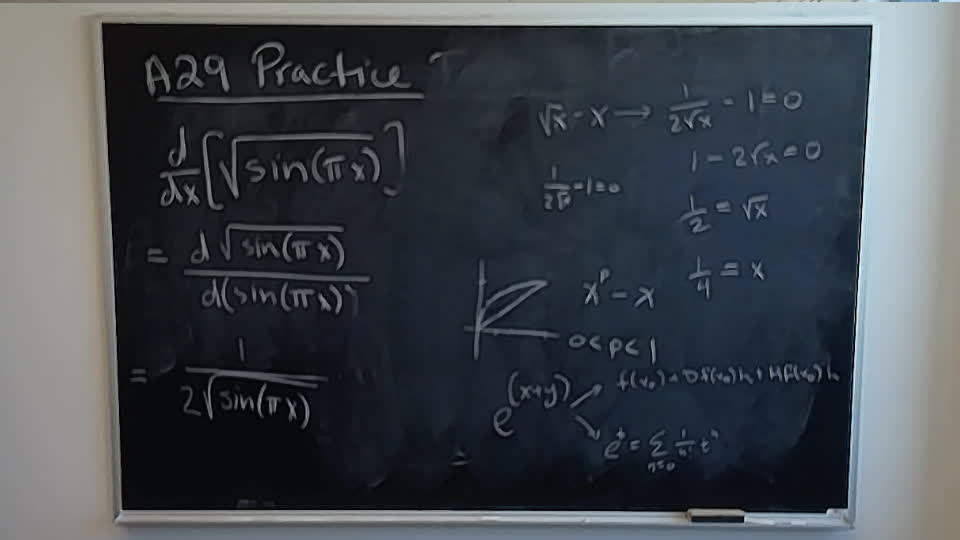 A29 Practice
d/dx [√sin(πx)]
= d√sin(πx) / d(sin(πx))
= 1 / 2√sin(πx)
√x - x → 1/2√x - 1 = 0
1 - 2√x = 0
1/2 = √x
1/4 = x
x^p - x
0 < p < 1
e^(x+y)
f(x₀) + Df(x₀)h + Hf(x₀)h
e^t = ∑ n=0 1/n! t^n